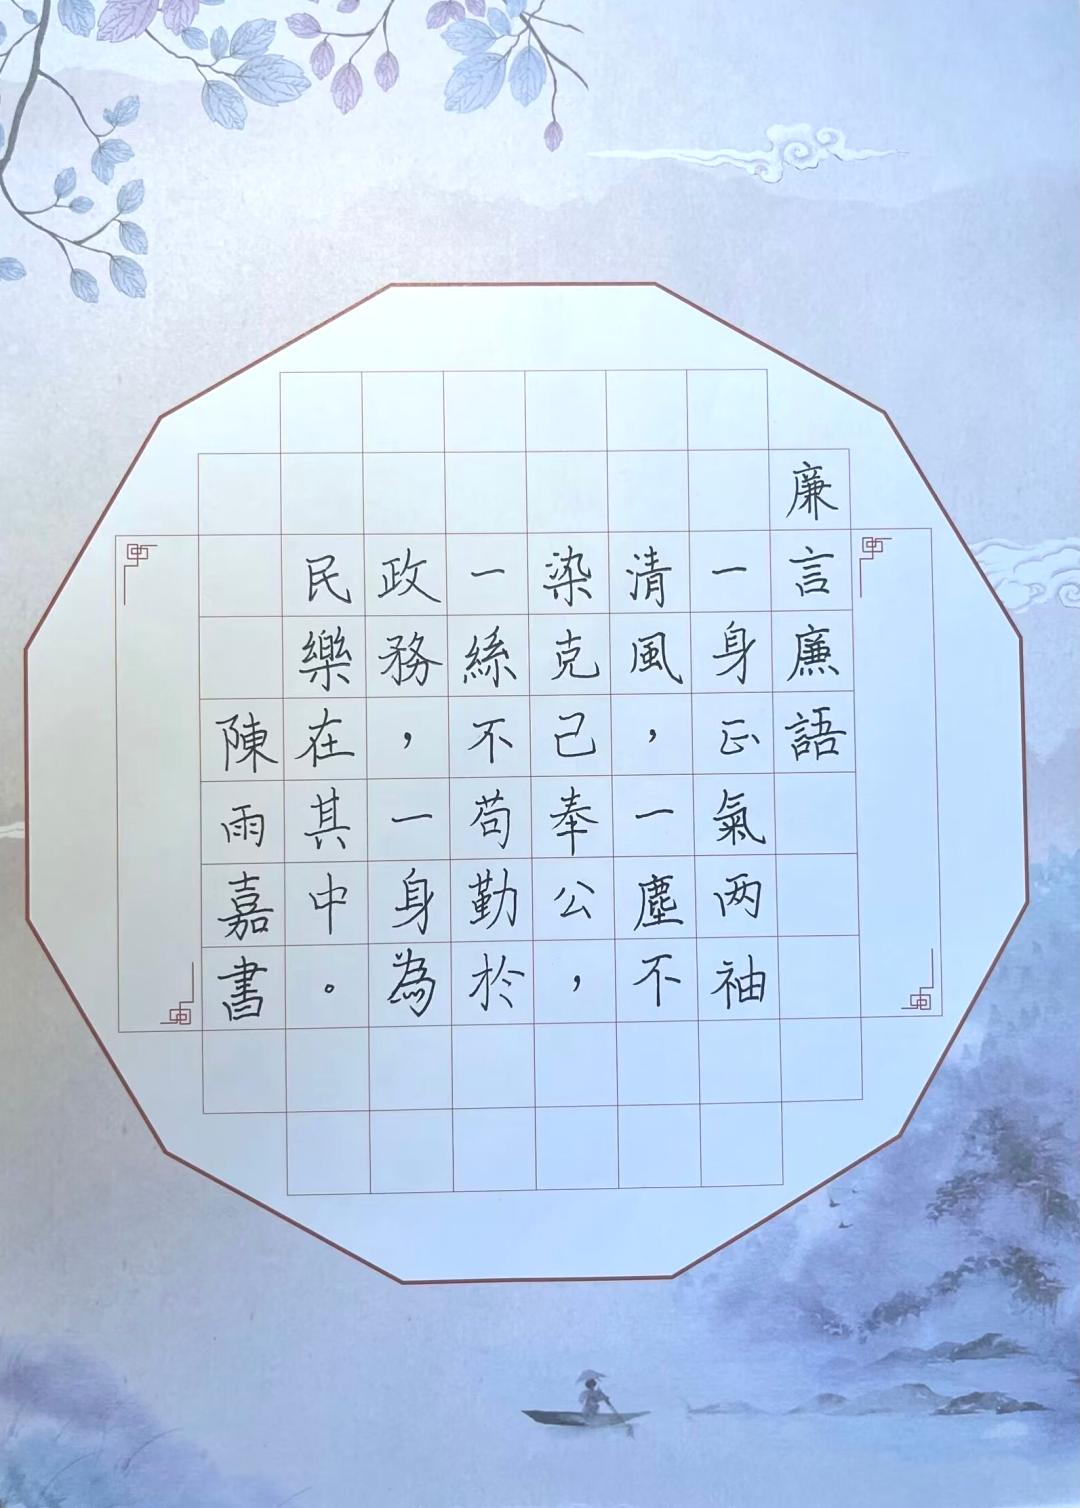 廉言廉語
一身正氣两袖
清風，一塵不
染克己奉公，
一絲不苟勤於
政務，一身為
民樂在其中。
陳雨嘉書